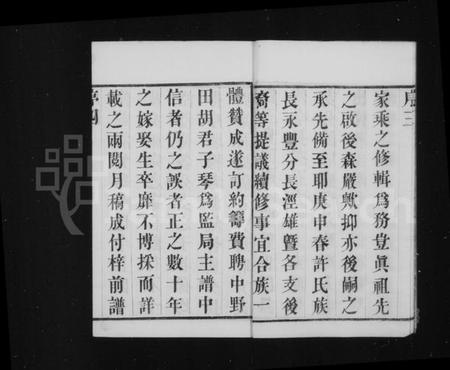 序三
家乘之修輯為務豈真祖先
之啟後森嚴歟抑亦後嗣之
承先備至耶庚申春許氏族
長永豐分長溼雄暨各支後
裔等提議續修事宜合族一
體贊成遂訂約籌費聘中野
田胡君子琴為監局主譜中
信者仍之誤者正之數十年
之嫁娶生卒靡不博採而詳
載之兩閱月稿成付梓前譜
序四